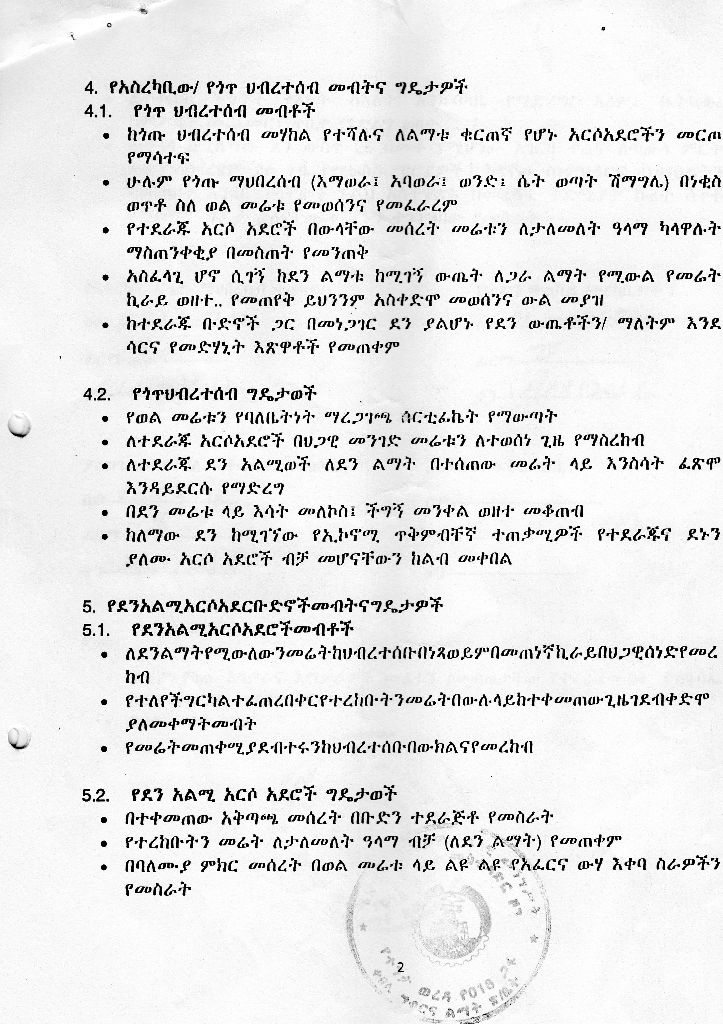 4. የአስረካቢው/ የጎጥ ሀብረተሰብ መብትና ግዴታዎች
4.1. የጎጥ ህብረተሰብ መብቶች
• ከጎጡ ህብረተሰብ መሃከል የተሻሉና ለልማቱ ቁርጠኛ የሆኑ አርሶአደሮችን መርጦ
የማሳተፍ
• ሁሉም የጎጡ ማህበረሰብ (እማወራ፤ አባወራ፤ ወንድ፤ ሴት ወጣት ሽማግሌ) በነቂስ
ወጥቶ ስለ ወል መሬቱ የመወሰንና የመፈራረም
• የተደራጁ አርሶ አደሮች በውላቸው መሰረት መሬቱን ለታለመለት ዓላማ ካላዋሉት
ማስጠንቀቂያ በመስጠት የመንጠቅ
• አስፈላጊ ሆኖ ሲገኝ ከደን ልማቱ ከሚገኝ ውጤት ለጋራ ልማት የሚውል የመሬት
ኪራይ ወዘተ.. የመጠየቅ ይህንንም አስቀድሞ መወሰንና ውል መያዝ
• ከተደራጁ ቡድኖች ጋር በመነጋገር ደን ያልሆኑ የደን ውጤቶችን/ ማለትም እንደ
ሳርና የመድሃኒት እጽዋቶች የመጠቀም
4.2. የጎጥህብረተሰብ ግዴታወች
• የወል መሬቱን የባለቤትነት ማረጋገጫ ሰርቲፊኬት የማውጣት
• ለተደራጁ አርሶአደሮች በህጋዊ መንገድ መሬቱን ለተወሰነ ጊዜ የማስረከብ
• ለተደራጁ ደን አልሚወች ለደን ልማት በተሰጠው መሬት ላይ እንስሳት ፈጽሞ
እንዳይደርሱ የማድረግ
• በደን መሬቱ ላይ እሳት መለኮስ፤ ችግኝ መንቀል ወዘተ መቆጠብ
• ከለማው ደን ከሚገኘው የኢኮኖሚ ጥቅምብቸኛ ተጠቃሚዎች የተደራጁና ደኑን
ያለሙ አርሶ አደሮች ብቻ መሆናቸውን ከልብ መቀበል
5. የደንአልሚአርሶአደርቡድኖችመብትናግዴታዎች
5.1. የደንአልሚአርሶአደሮችመብቶች
• ለደንልማትየሚውለውንመሬትከህብረተሰቡበነጻወይምበመጠነኛኪራይበህጋዊሰነድየመረ
ከብ
• የተለየችግርካልተፈጠረበቀርየተረከቡትንመሬትበውሉላይከተቀመጠውጊዜገደብቀድሞ
ያለመቀማትመብት
• የመሬትመጠቀሚያደብተሩንከህብረተሰቡበውክልናየመረከብ
5.2. የደን አልሚ አርሶ አደሮች ግዴታወች
• በተቀመጠው አቅጣጫ መሰረት በቡድን ተደራጅቶ የመስራት
• የተረከቡትን መሬት ለታለመለት ዓላማ ብቻ (ለደን ልማት) የመጠቀም
• በባለሙያ ምክር መሰረት በወል መሬቱ ላይ ልዩ ልዩ የአፈርና ውሃ እቀባ ስራዎችን
የመስራት
2